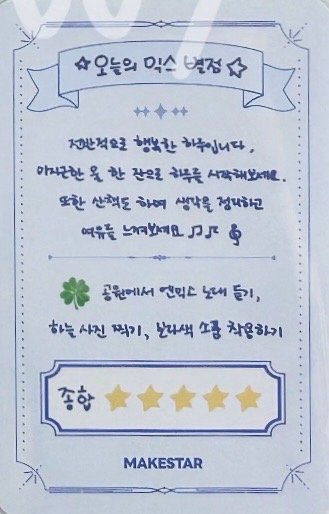 ☆오늘의 믹스 별점☆
전반적으로 행복한 하루입니다.
미지근한 물 한 잔으로 하루를 시작해보세요.
또한 산책도 하며 생각을 정리하고
여유를 느껴보세요 ♫♪ 𝄞
🍀 공원에서 엔믹스 노래 듣기,
하늘 사진 찍기, 남색 소품 착용하기
종합 ★★★★★
MAKESTAR